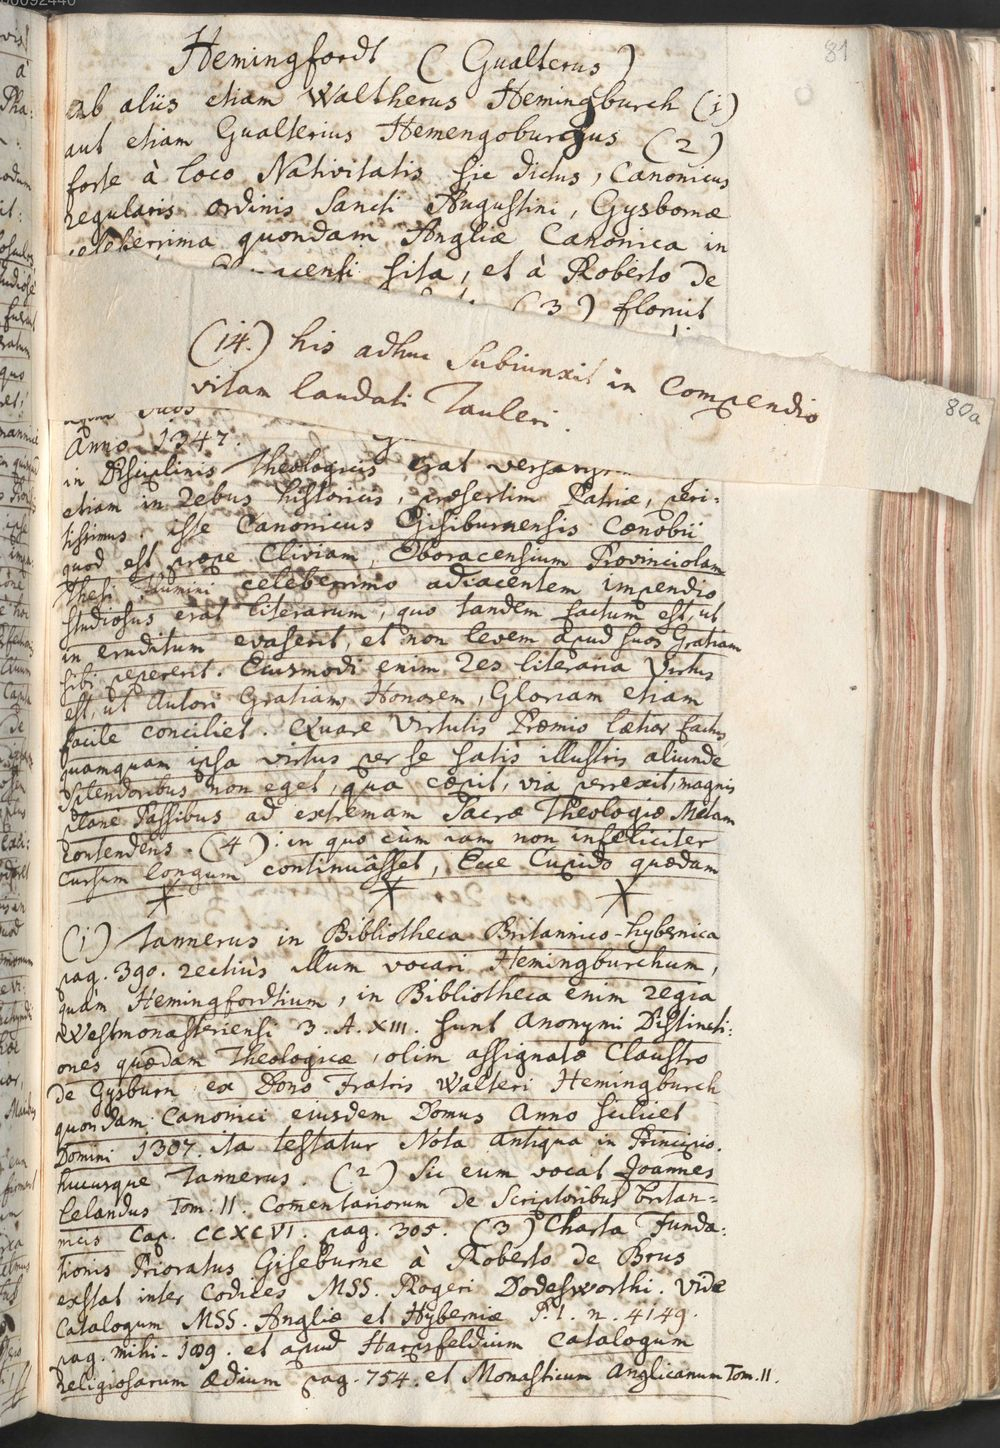 81
Hemingfordt (Gualterus)
ab aliis etiam Waltherus Hemingburch (1)
aut etiam Gualterius Hemengoburgus (2)
forte à loco Nativitatis sic dictus, Canonicus
regularis ordinis Sancti Augustini, Gysbornæ
celeberrima quondam Angliæ Canonica in
sita, et à Roberto de
(3) floruit
(14.) his adhuc subiunxit in Compendio
vitam laudati Tauleri.
80a
Anno 1347.
in Disciplinis Theologicis erat
etiam in rebus historicis, præsertim Patriæ, peri-
tissimus. iste Canonicus Gisiburnensis Cœnobii
quod est prope Cliviam, Eboracensium Provinciolam
Thesi flumini celeberrimo adiacentem impendio
studiosus erat literarum, quo tandem factum est, ut
in eruditum evaserit, et non levem apud suos Gratiam
sibi pepererit. Eiusmodi enim res literaria Virtus
est, ut Autori Gratiam, Honorem, Gloriam etiam
facile conciliet. Quare Virtutis Præmio lætior factus,
quamquam ipsa virtus per se satis illustris aliunde
splendoribus non eget, qua cœpit, via perrexit, magnis
plane Passibus ad extremam Sacræ Theologiæ Metam
contendens. (4) in quo cùm iam non infeliciter
Cursum longum continuâsset, Ecce Cupido quædam
(1) Tannerus in Bibliotheca Britannico-hybernica
pag. 390. rectiùs illum vocari Hemingburchum,
quàm Hemingfordtium, in Bibliotheca enim regia
Westmonasteriensi 3. A. XIII. sunt Anonymi Distincti-
ones quædam Theologicæ, olim assignatæ Claustro
de Gysburn ex Dono Fratris Walteri Hemingburch
quondam Canonici eiusdem Domus Anno scilicet
Domini 1307. ita testatur Nota antiqua in Principio.
hucusque Tannerus. (2) Sic eum vocat Joannes
Lelandus Tom. II. Comentariorum de Scriptoribus Britan-
nicis Cap. CCXCVI. pag. 305. (3) Charta Funda-
tionis Prioratus Giseburne à Roberto de Brus
exstat inter Codices MSS. Rogeri Dodesworthi. vide
Catalogum MSS. Angliæ et Hyberniæ P. 1. n. 4149.
pag. mihi. 189. et apud Harpsfeldium Catalogum
religiosarum ædium pag. 754. et Monasticum Anglicanum Tom. II.